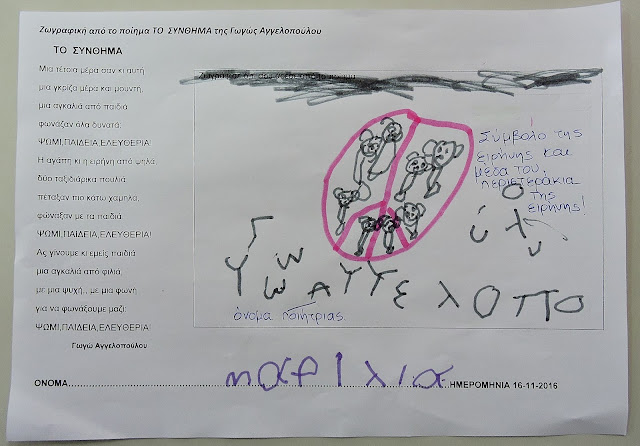 Ζωγραφική από το ποίημα ΤΟ ΣΥΝΘΗΜΑ της Γωγώς Αγγελοπούλου
ΤΟ ΣΥΝΘΗΜΑ
Μια τέτοια μέρα σαν κι αυτή
μια γκρίζα μέρα και μουντή,
μια αγκαλιά από παιδιά
φωνάζαν όλα δυνατά:
ΨΩΜΙ,ΠΑΙΔΕΙΑ,ΕΛΕΥΘΕΡΙΑ!
Η αγάπη κι η ειρήνη από ψηλά,
δύο ταξιδιάρικα πουλιά
πέταξαν πιο κάτω χαμηλά,
φώναξαν με τα παιδιά
ΨΩΜΙ,ΠΑΙΔΕΙΑ,ΕΛΕΥΘΕΡΙΑ!
Ας γίνουμε κι εμείς παιδιά
μια αγκαλιά από φιλιά,
με μια ψυχή,, με μια φωνή
για να φωνάξουμε μαζί:
ΨΩΜΙ,ΠΑΙΔΕΙΑ,ΕΛΕΥΘΕΡΙΑ!
Γωγώ Αγγελοπούλου
Σύμβολο της
ειρήνης και
μέσα του
περιστεράκια
της
ειρήνης!
Γωγώ Αγγελοπο
ύλου
όνομα ποιήτριας.
ΟΝΟΜΑ μαριλια ΗΜΕΡΟΜΗΝΙΑ 16-11-2016